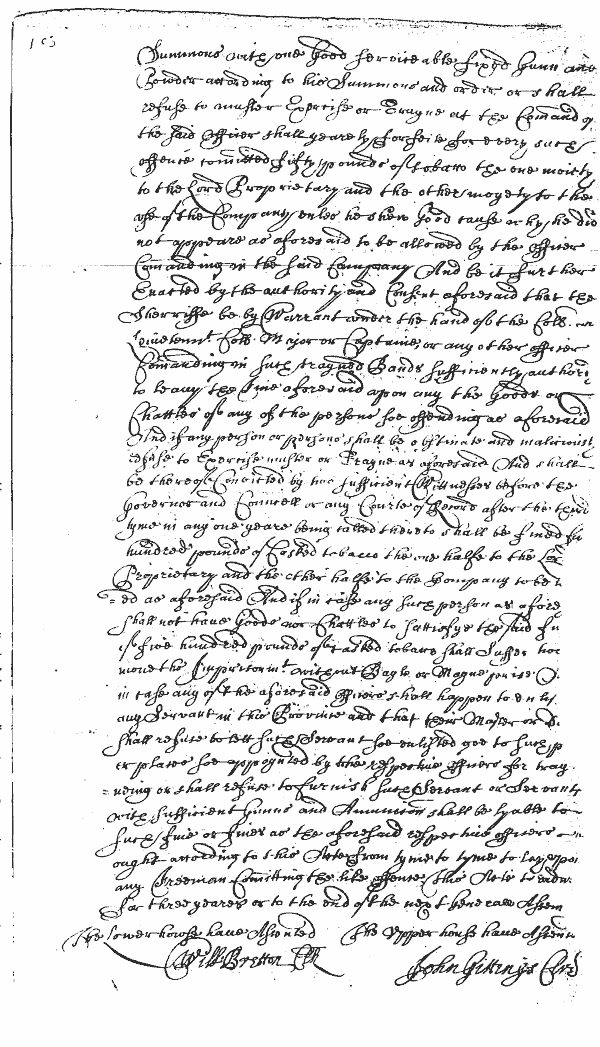 Summons with one Good serviceable fixed Gunn and
Powder according to his Summons and order or shall
refuse to muster Exercise or Trayne at the Comand of
the said Officer shall yearely forfeite for every such
offence comitted fifty pounds of tobacco the one moiety
to the Lord Proprietary and the other moyety to the
use of the Company unles he shew Good cause why he did
not appeare as aforesaid to be allowed by the Officer
Comanding in the said Company And be it further
Enacted by the authority and Consent aforesaid that the
Sherriffe be by Warrant under the hand of the Coll. or
Coll. Major or Captaine, or any other officer
Comanding in such trayned Bands sufficiently authori
to leavy the fine aforesaid upon any the Goods or
Chattles of any of the persons soe offending as aforesaid
And if any person or persons shall be obstinate and maliciously
refuse to Exercise muster or Trayne as aforesaid And shall
be thereof Convicted by two sufficient Wittnesses before the
Governor and Councell or any Courte of Record after the
tyme in any one yeare being called thereto shall be fined
hundred pounds of Casked tobacco the one halfe to the
Proprietary and the other halfe to the Company to be
=ed as aforesaid And if in case any such person as afore
shall not have Goods nor Chattles to sattisfye the said
of five hundred pounds of Casked tobacco shall suffer
moneths Imprisonmt. without Bayle or Mayneprise
in case any of the aforesaid officers shall happen to
any Servant in this Province and that their Master or
shall refuse to lett such Servant soe enlisted goe to such
or places soe appoynted by the respective officers for tray
=ning or shall refuse to furnish such Servant or Servants
with sufficient Gunns and Amunicon shall be lyable to
such fine or fines as the aforesaid respective officers
ought according to this Acte from tyme to tyme to
any Freeman Comitting the like offence, this Acte to
for three yeares or to the end of the next Generall Assem
The Lower howse have Assented The Upper house have Assented
Will Bretton Clk John Gittings Clre